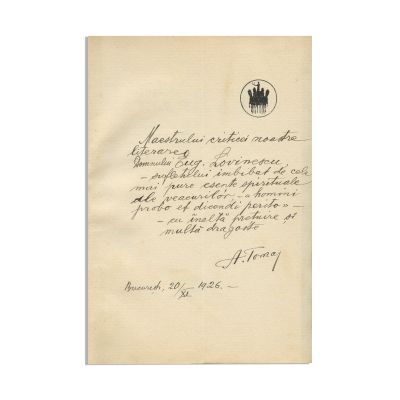 Maestrului criticei noastre
literare
Domnului Eug. Lovinescu,
– sufletului imbibat de cele
mai pure esențe spirituale
ale veacurilor – „homini
probo et dicendi perito” –
– cu înaltă prețuire și
multă dragoste
A. Toma
București, 20/XI 1926. –